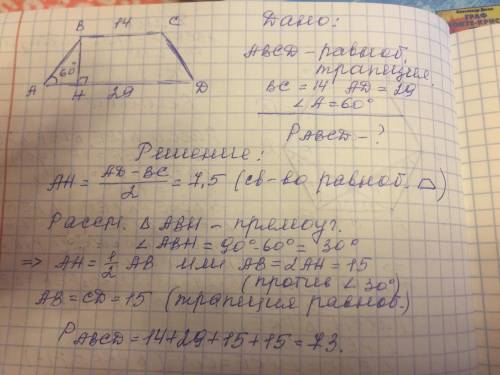 Дано:
B 14 C
60°
A H 29 D
ABCD - равноб.
трапеция.
BC = 14 AD = 29
∠A = 60°
P ABCD - ?
Решение:
AH = (AD - BC)/2 = 7,5 (св-во равноб. ⏢)
Рассм. △ ABH - прямоуг.
∠ABH = 90° - 60° = 30°
⇒ AH = 1/2 AB или AB = 2AH = 15
(против ∠ 30°)
AB = CD = 15 (трапеция равноб.)
P ABCD = 14 + 29 + 15 + 15 = 73.
ГРАФ